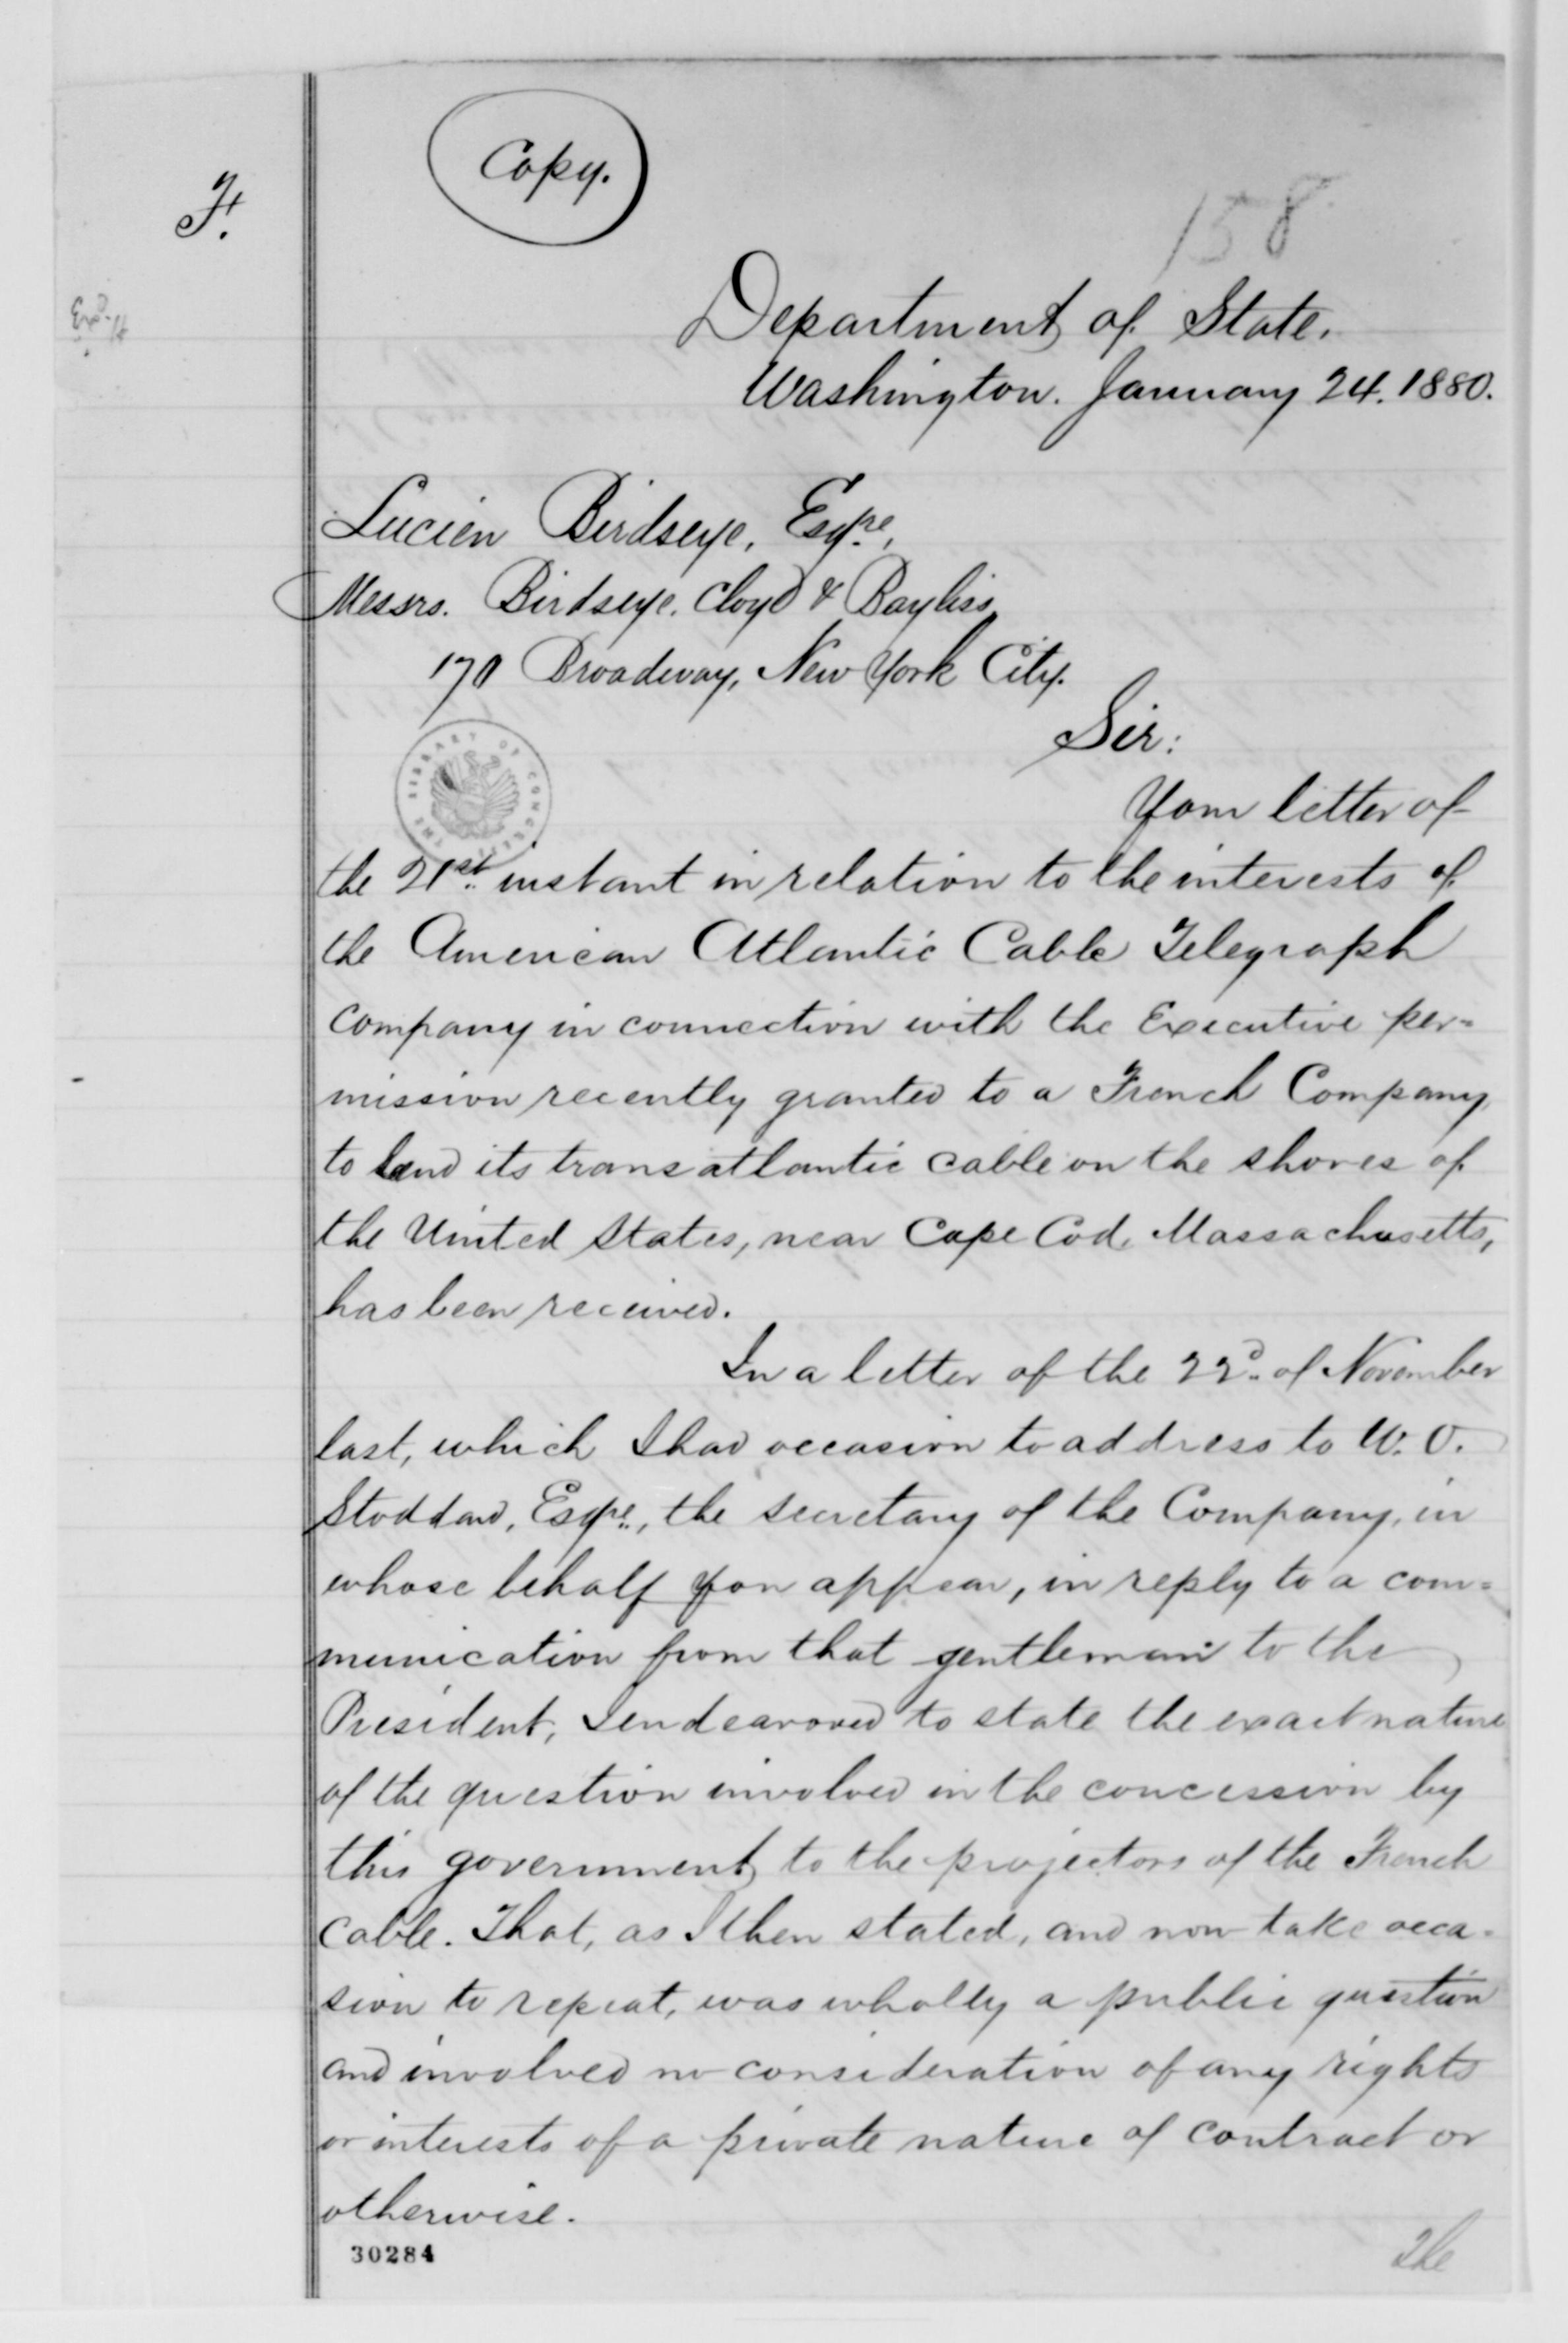 Copy.
F.
158
Department of State.
Washington. January 24. 1880.
Lucien Birdseye, Esqre,
Messrs. Birdseye, Cloyd & Bayliss,
170 Broadway, New York City.
Sir:
THE LIBRARY OF CONGRESS
Your letter of
the 21st instant in relation to the interests of
the American Atlantic Cable Telegraph
Company in connection with the Executive per=
mission recently granted to a French Company,
to land its transatlantic cable on the shores of
the United States, near Cape Cod, Massachusetts,
has been received.
In a letter of the 22d of November
last, which I had occasion to address to W. O.
Stoddard, Esqre., the secretary of the Company, in
whose behalf you appear, in reply to a com=
munication from that gentleman to the
President, I endeavored to state the exact nature
of the question involved in the concession by
this government to the projectors of the French
Cable. That, as I then stated, and now take occa-
sion to repeat, was wholly a public question
and involved no consideration of any rights
or interests of a private nature of contract or
otherwise.
30284
The